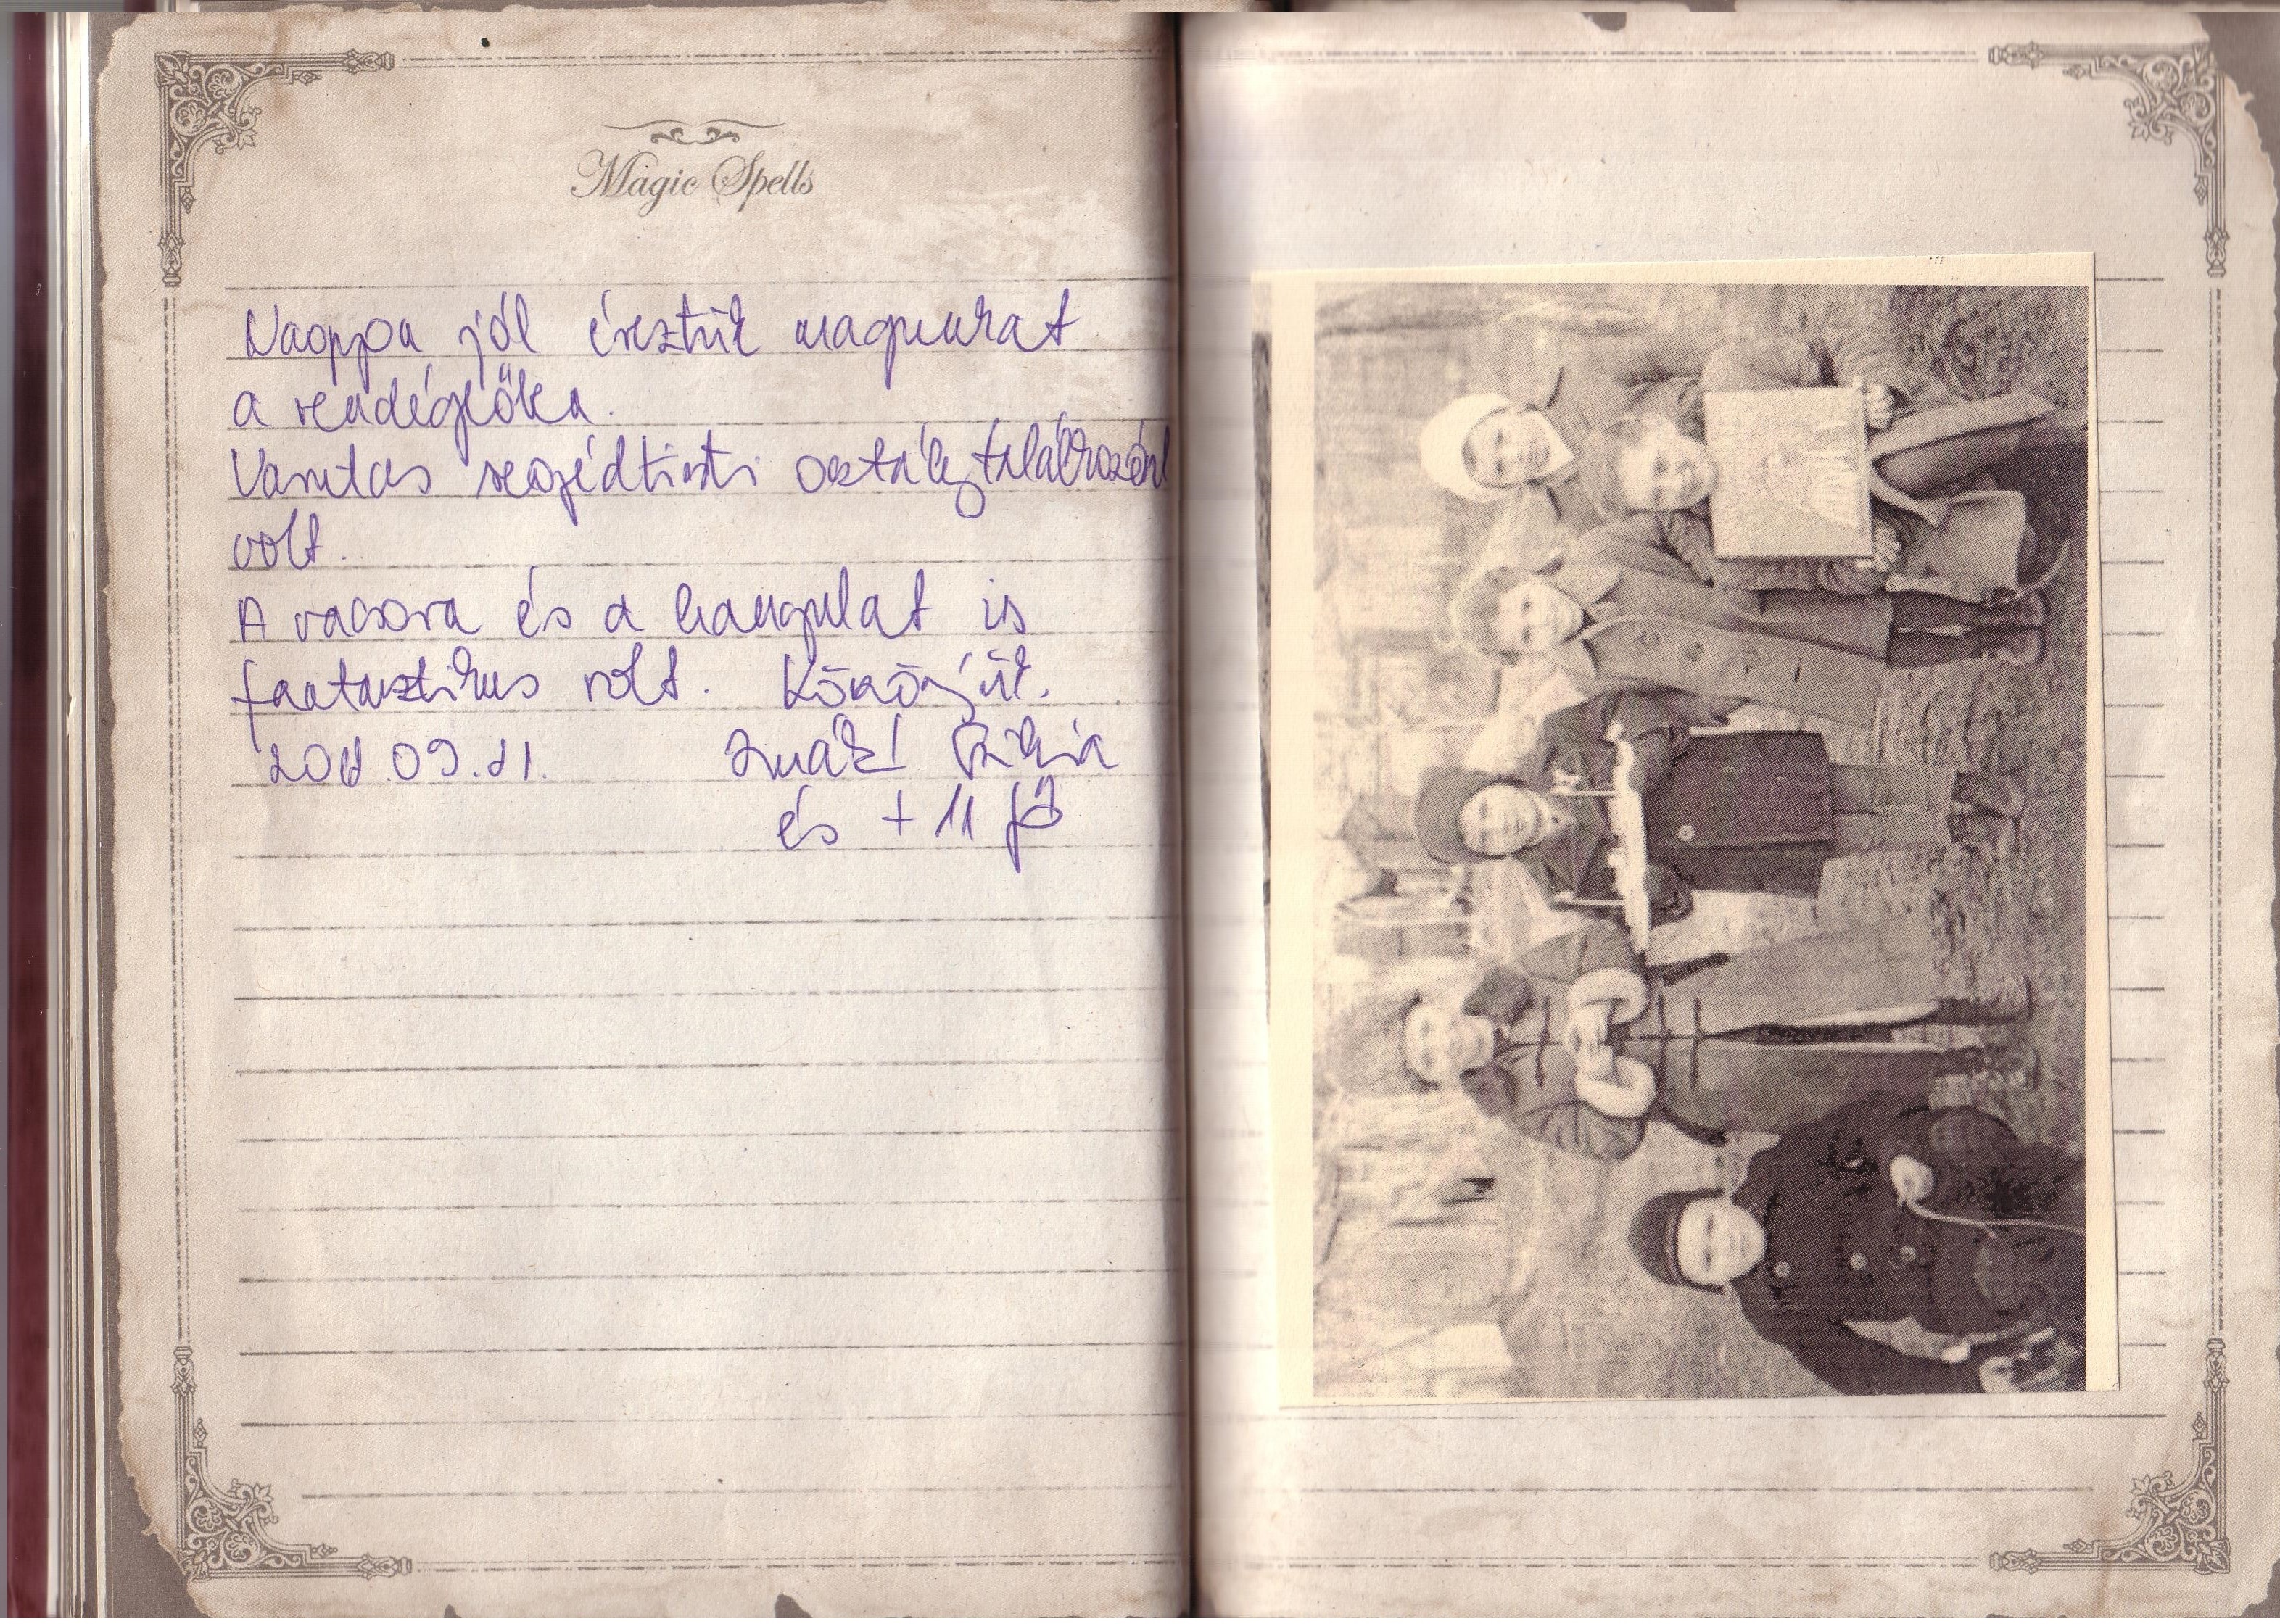 Magic Spells
Nagyon jól éreztük magunkat
a vendéglőben.
Vasutas segédtiszti osztálytalálkozónk
volt.
A vacsora és a hangulat is
fantasztikus volt. Köszönjük.
09.11.
és + 11 fő